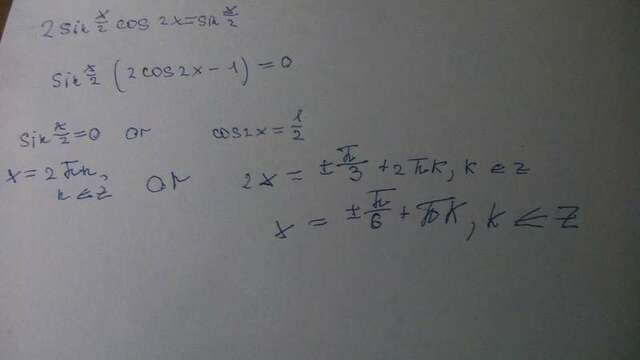 2 sin x/2 cos 2x = sin x/2
sin x/2 (2 cos 2x - 1) = 0
sin x/2 = 0 or cos 2x = 1/2
x = 2πk, k ∈ Z or 2x = ± π/3 + 2πk, k ∈ Z
x = ± π/6 + πk, k ∈ Z